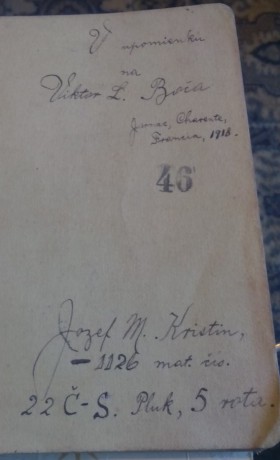 V upomienku
na
Viktor L. Boča
Jarnac, Charente,
Francia, 1918.
46
Jozef M. Kristin,
– 1126 mat. čís.
22 Č-S. Pluk, 5 rota.